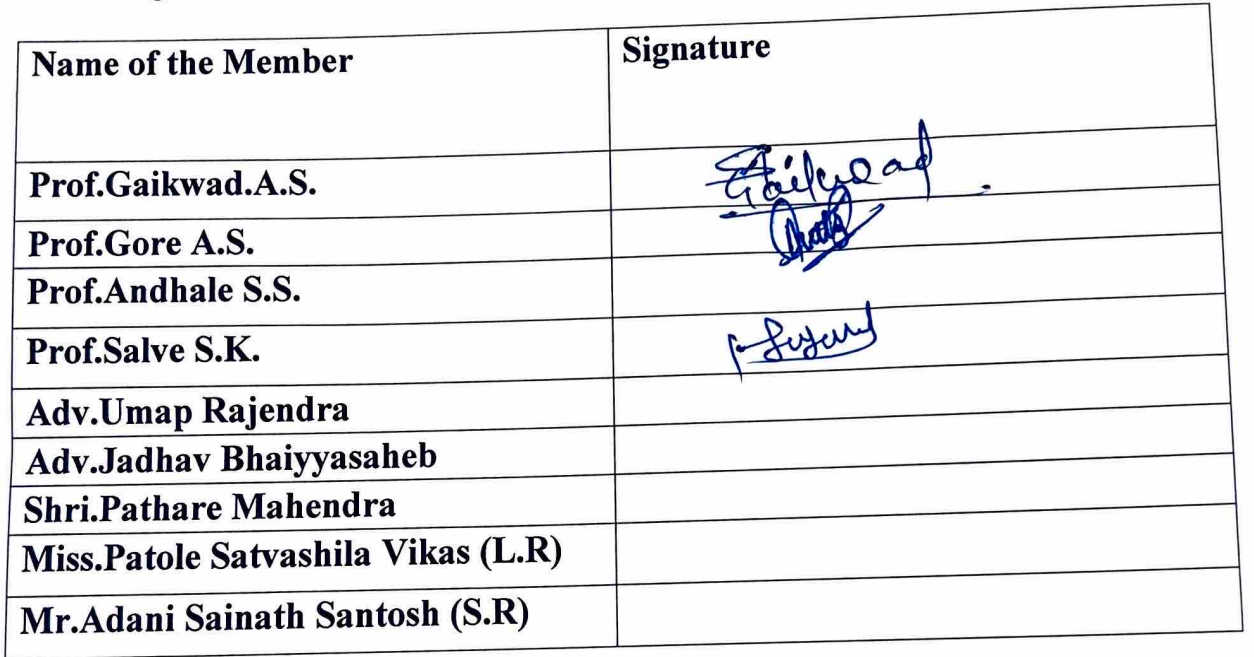 Name of the Member Signature
Prof.Gaikwad.A.S. Gaikwad
Prof.Gore A.S.
Prof.Andhale S.S.
Prof.Salve S.K.
Adv.Umap Rajendra
Adv.Jadhav Bhaiyyasaheb
Shri.Pathare Mahendra
Miss.Patole Satvashila Vikas (L.R)
Mr.Adani Sainath Santosh (S.R)